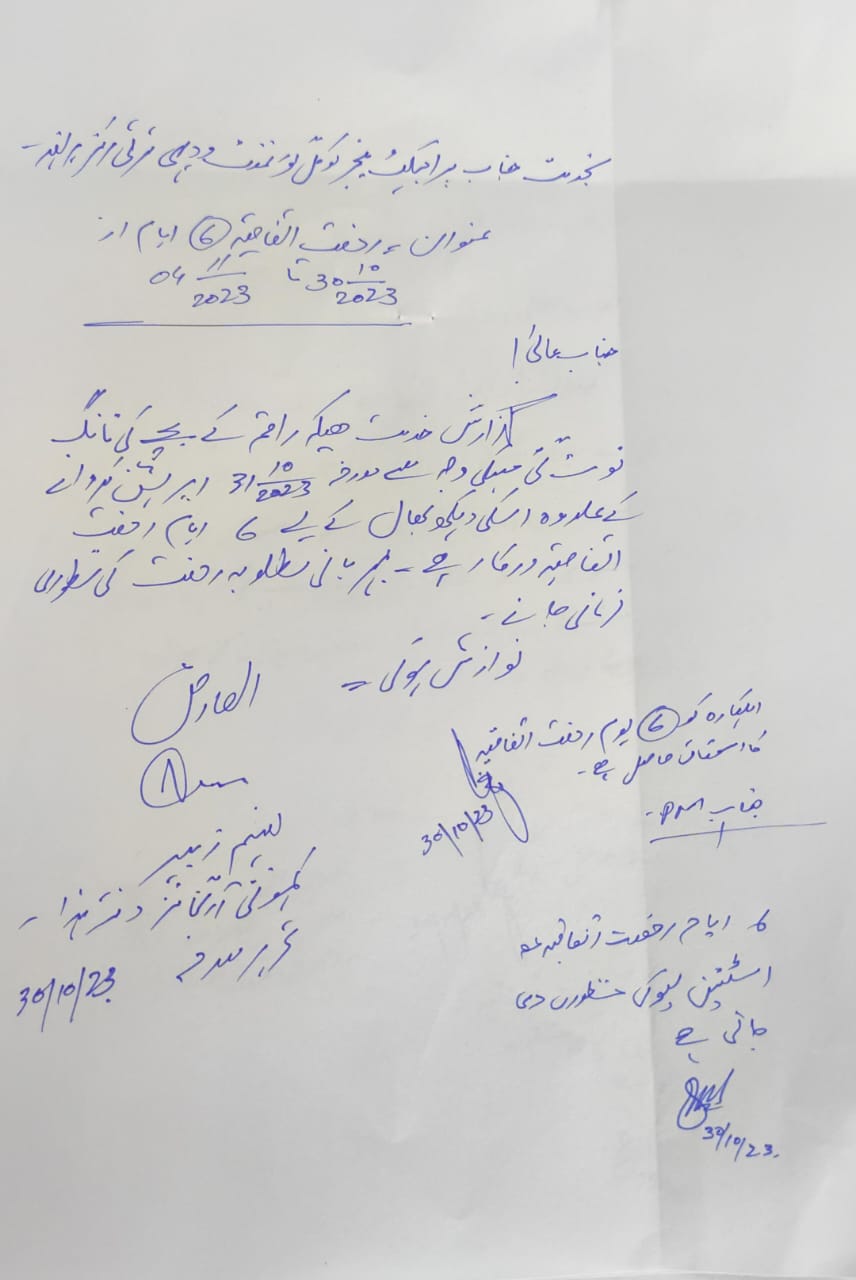 بخدمت جناب پراجیکٹ منیجر لوکل گورنمنٹ و دیہی ترقی مرکز
عنوان :۔ رخصت اتفاقیہ 6 ایام از
30 10/2023 تا 04 11/2023
جناب عالی!
گزارش خدمت ہیکہ راقم کے بچے کی ٹانگ
ٹوٹ گئی جسکی وجہ سے مورخہ 31 10/2023 اپریشن کروانے
کے علاوہ اسکی دیکھ بھال کے لیے 6 ایام رخصت
اتفاقیہ درکار ہے ۔ مہربانی مطلوبہ رخصت کی منظوری
فرمائی جائے ۔
نوازش ہوگی ۔
العارض
نسیم زبیر
کمیونٹی آرگنائزر دفتر ہذا ۔
تحریر مورخہ
30/10/23
اہلکارہ کو 6 یوم رخصت اتفاقیہ
کا استحقاق حاصل ہے ۔
30/10/23
جناب PM ۔
6 ایام رخصت اتفاقیہ معہ
اسٹیشن لیو کی منظوری دی
جاتی ہے
30/10/23.